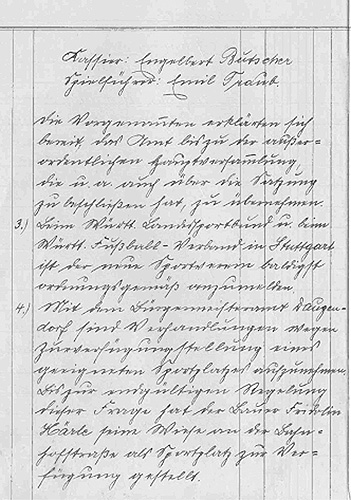 Kassier: Engelbert Butscher
Spielführer: Emil Traub.
Die Vorgenannten erklärten sich
bereit, das Amt bis zu der außer=
ordentlichen Hauptversammlung,
die u. a. auch über die Satzung
zu beschließen hat, zu übernehmen.
3.) Beim Württ. Landessportbund u. beim
Württ. Fußball-Verband in Stuttgart
ist der neue Sportverein baldigst
ordnungsgemäß anzumelden.
4.) Mit dem Bürgermeisteramt Daugen-
dorf sind Verhandlungen wegen
Zurverfügungstellung eines
geeigneten Sportplatzes aufzunehmen.
Bis zur endgültigen Regelung
dieser Frage hat der Bauer Fridolin
Härle seine Wiese an der Bahn-
hofstraße als Sportplatz zur Ver-
fügung gestellt.